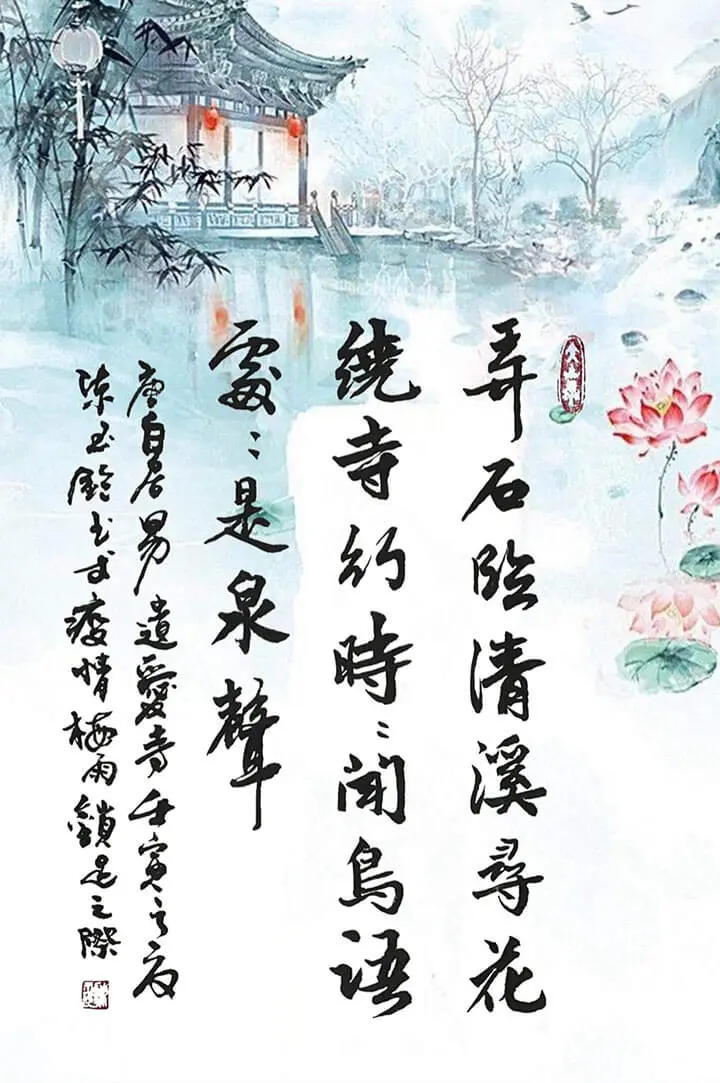 弄石臨清溪尋花
繞寺行時〻聞鳥語
處〻是泉聲
唐白居易遺愛寺壬寅之夏
陳玉鈴書於疫情梅雨鎖足之際